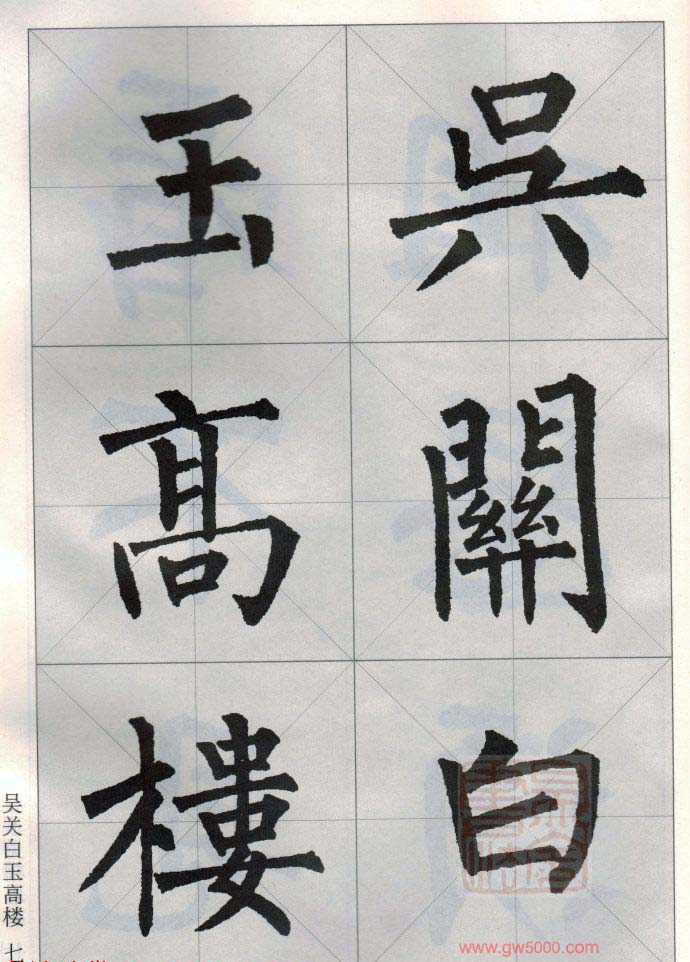 吳關白
玉高樓
吴关白玉高楼 七
www.gw5000.com